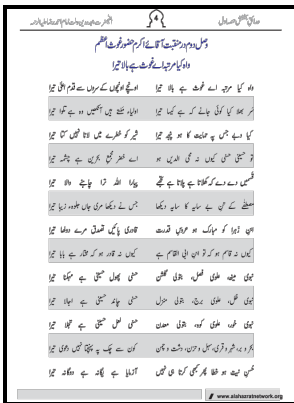 حدائق بخشش حصہ اول
4
وصل دوم در منقبت آقائے اکرم حضور غوث اعظم
واہ کیا مرتبہ اے غوث ہے بالا تیرا
واہ کیا مرتبہ اے غوث ہے بالا تیرا اونچے اونچوں کے سروں سے قدم اعلیٰ تیرا
سر بھلا کیا کوئی جانے کہ ہے کیسا تیرا اولیاء ملتے ہیں آنکھیں وہ ہے تلوا تیرا
کیا دبے جس پہ حمایت کا ہو پنجہ تیرا شیر کو خطرے میں لاتا نہیں کتا تیرا
تو حسینی حسنی کیوں نہ محی الدیں ہو اے خضر مجمع بحرین ہے چشمہ تیرا
قسمیں دے دے کے کھلاتا ہے پلاتا ہے تجھے پیارا اللہ ترا چاہنے والا تیرا
مصطفےٰ کے تن بے سایہ کا سایہ دیکھا جس نے دیکھا مری جاں جلوۂ زیبا تیرا
ابن زہرا کو مبارک ہو عروس قدرت قادری پائیں تصدق مرے دولھا تیرا
کیوں نہ قاسم ہو کہ تو ابن ابی القاسم ہے کیوں نہ قادر ہو کہ مختار ہے بابا تیرا
نبوی مینہ علوی فصل بتولی گلشن حسنی پھول حسینی ہے مہکنا تیرا
نبوی ظل علوی برج بتولی منزل حسنی چاند حسینی ہے اجالا تیرا
نبوی خور علوی کوہ بتولی معدن حسنی لعل حسینی ہے تجلا تیرا
بحر و بر شہر و قریٰ سہل و حزن دشت و چمن کون سے چک پہ پہنچتا نہیں دعویٰ تیرا
حسن نیت ہو خطا پھر کبھی کرتا ہی نہیں آزمایا ہے یگانہ ہے دوگانہ تیرا
www.alahazratnetwork.org